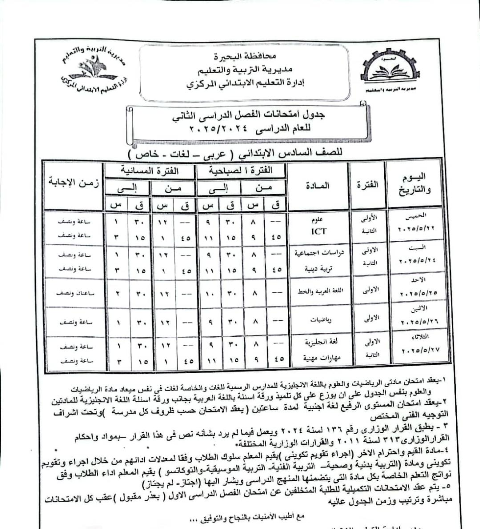 مديرية التربية والتعليم
إدارة التعليم الابتدائي المركزي
محافظة البحيرة
مديرية التربية والتعليم
إدارة التعليم الابتدائي المركزي
جدول امتحانات الفصل الدراسى الثاني
للعام الدراسى ٢٠٢٥/٢٠٢٤
للصف السادس الابتدائي ( عربي – لغات - خاص )
اليوم والتاريخ الفترة المادة الفترة الصباحية الفترة المسائية زمن الإجابة
من إلى من إلى
ق س ق س ق س ق س
الخميس ٢٠٢٥/٥/٢٢ الأولى علوم -- ٨ ٣٠ ٩ -- ١٢ ٣٠ ١ ساعة ونصف
الثانية ICT ٤٥ ٩ ١٥ ١١ ٤٥ ١ ١٥ ٣ ساعة ونصف
السبت ٢٠٢٥/٥/٢٤ الأولى دراسات اجتماعية -- ٨ ٣٠ ٩ -- ١٢ ٣٠ ١ ساعة ونصف
الثانية تربية دينية ٤٥ ٩ ١٥ ١١ ٤٥ ١ ١٥ ٣ ساعة ونصف
الاحد ٢٠٢٥/٥/٢٥ الاولى اللغة العربية والخط -- ٨ ٣٠ ١٠ -- ١٢ ٣٠ ٢ ساعتان ونصف
الاثنين ٢٠٢٥/٥/٢٦ الأولى رياضيات -- ٨ ٣٠ ٩ -- ١٢ ٣٠ ١ ساعة ونصف
الثلاثاء ٢٠٢٥/٥/٢٧ الأولى لغة انجليزية -- ٨ ٣٠ ٩ -- ١٢ ٣٠ ١ ساعة ونصف
الثانية مهارات مهنية ٤٥ ٩ ١٥ ١١ ٤٥ ١ ١٥ ٣ ساعة ونصف
١-يعقد امتحان مادتى الرياضيات والعلوم باللغة الانجليزية للمدارس الرسمية للغات والخاصة لغات في نفس ميعاد مادة الرياضيات
والعلوم بنفس الجدول على ان يوزع على كل تلميذ ورقة اسئلة باللغة العربية بجانب ورقة اسئلة اللغة الانجليزية للمادتين
٢-يعقد امتحان المستوى الرفيع لغة اجنبية لمدة ساعتين ( يعقد الامتحان حسب ظروف كل مدرسة )وتحت اشراف
التوجيه الفنى المختص
٣ - يطبق القرار الوزاري رقم ١٣٦ لسنة ٢٠٢٤ ويعمل فيما لم يرد بشانه نص فى هذا القرار –بمواد واحكام
القرارالوزارى٣١٣ لسنة ٢٠١١ والقرارات الوزارية المختلفة*
٤- مادة القيم واحترام الاخر (اجراء تقويم تكويني )يقيم المعلم سلوك الطلاب وفقا لمعدلات ادائهم من خلال اجراء وتقويم
تكويني ومادة (التربية بدنية وصحية– التربية الفنية- التربية الموسيقية-والتوكاتسو ) يقيم المعلم اداء الطلاب وفق
نواتج التعلم الخاصة بكل مادة التي يتضمنها المنهج الدراسي ويشار اليها (اجتاز- لم يجتاز)
٥- يتم عقد الامتحانات التكميلية للطلبة المتخلفين عن امتحان الفصل الدراسى الاول ( بعذر مقبول )عقب كل الامتحانات
مباشرة وترتيب وزمن الجدول عالية
مع اطيب الأمنيات بالنجاح والتوفيق ...